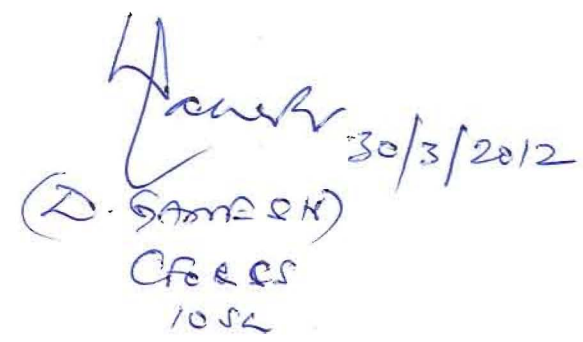 30/3/2012
(D. GANESH)
CFO & CS
IOSL